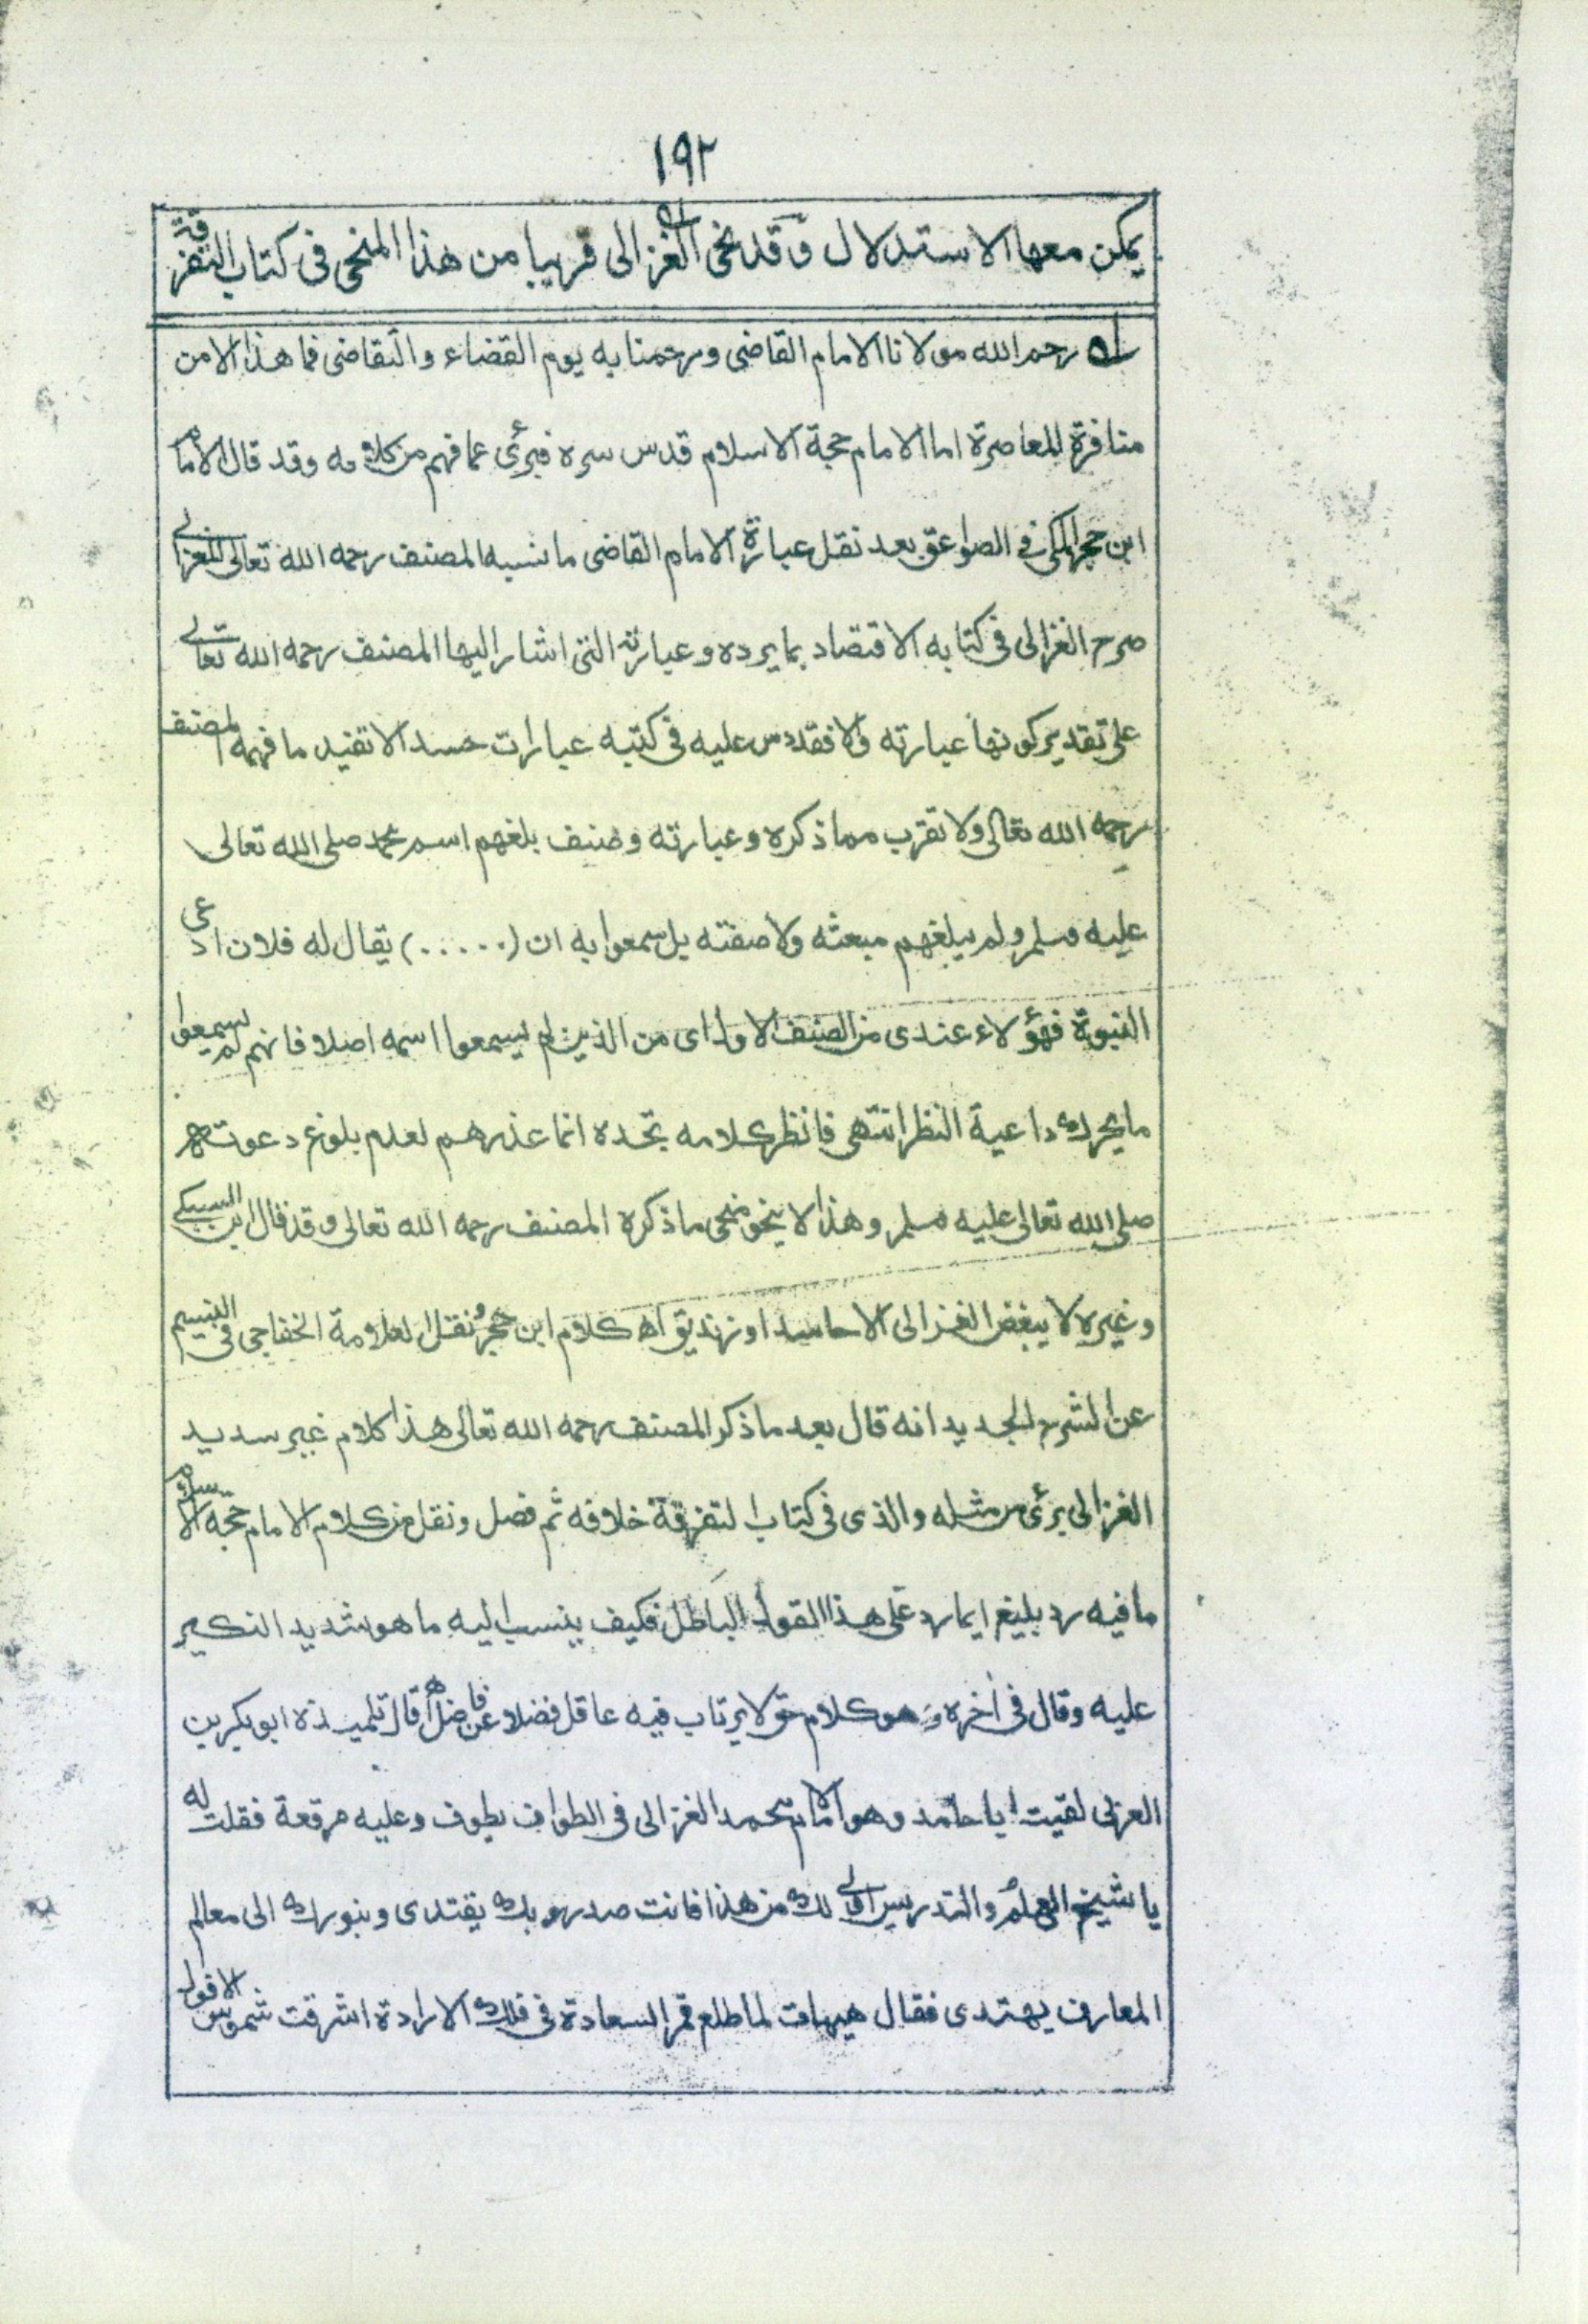 ١٩٢
يمكن معها الاستدلال وقد نحى الغزالى قريبا من هذا المنحى فى كتاب التفرقة
رحم الله مولانا الامام القاضى ورحمنا به يوم القضاء والتقاضى فما هذا الا من
منافرة للمعاصرة اما الامام حجة الاسلام قدس سره فبرئ عما فهم من كلامه وقد قال الامام
ابن حجر المكى فى الصواعق بعد نقل عبارة الامام القاضى ما نسبه المصنف رحمه الله تعالى للغزالى
صرح الغزالى فى كتابه الاقتصاد بما يرده وعبارته التى اشار اليها المصنف رحمه الله تعالى
على تقدير كونها عبارته والا فقد دس عليه فى كتبه عبارات حسدا لا تفيد ما فهمه المصنف
رحمه الله تعالى ولا تقرب مما ذكره وعبارته وصنف بلغهم اسم محمد صلى الله تعالى
عليه وسلم ولم يبلغهم مبعثه ولا صفته بل سمعوا به ان (.....) يقال له فلان ادعى
النبوة فهؤلاء عندى من الصنف الاول اى من الذين لم يسمعوا اسمه اصلا فانهم لم يسمعوا
ما يحرك داعية النظر انتهى فانظر كلامه تجده انما عذرهم لعدم بلوغ دعوته
صلى الله تعالى عليه وسلم وهذا لا ينحو منحى ما ذكره المصنف رحمه الله تعالى وقد قال ابن السبكى
وغيره لا يبغض الغزالى الا حاسد او زنديق اه كلام ابن حجر ونقل العلامة الخفاجى فى النسيم
عن الشرح الجديد انه قال بعد ما ذكر المصنف رحمه الله تعالى هذا كلام غير سديد
الغزالى برئ من مثله والذى فى كتاب التفرقة خلافه ثم فصل ونقل من كلام الامام حجة الاسلام
ما فيه رد بليغ ايما رد على هذا القول الباطل فكيف ينسب اليه ما هو شديد النكير
عليه وقال فى اخره وهو كلام حق لا يرتاب فيه عاقل فضلا عن فاضل اه قال تلميذه ابو بكر بن
العربى لقيت ابا حامد وهو الامام محمد الغزالى فى الطواف يطوف وعليه مرقعة فقلت له
يا شيخ العلم والتدريس اولى لك من هذا فانت صدر وبك يقتدى وبنورك الى معالم
المعارف يهتدى فقال هيهات لما طلع قمر السعادة فى فلك الارادة اشرقت شموس الافول